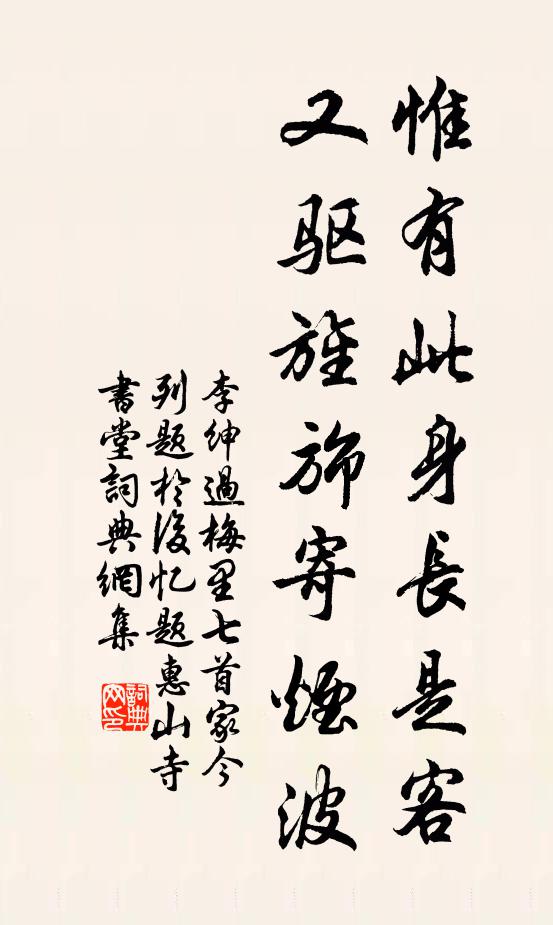 惟有此身長是客
又驱旌旆寄煙波
李紳過梅里七首家今
列題於後忆題惠山寺
書堂詞典網集
詞典
网印